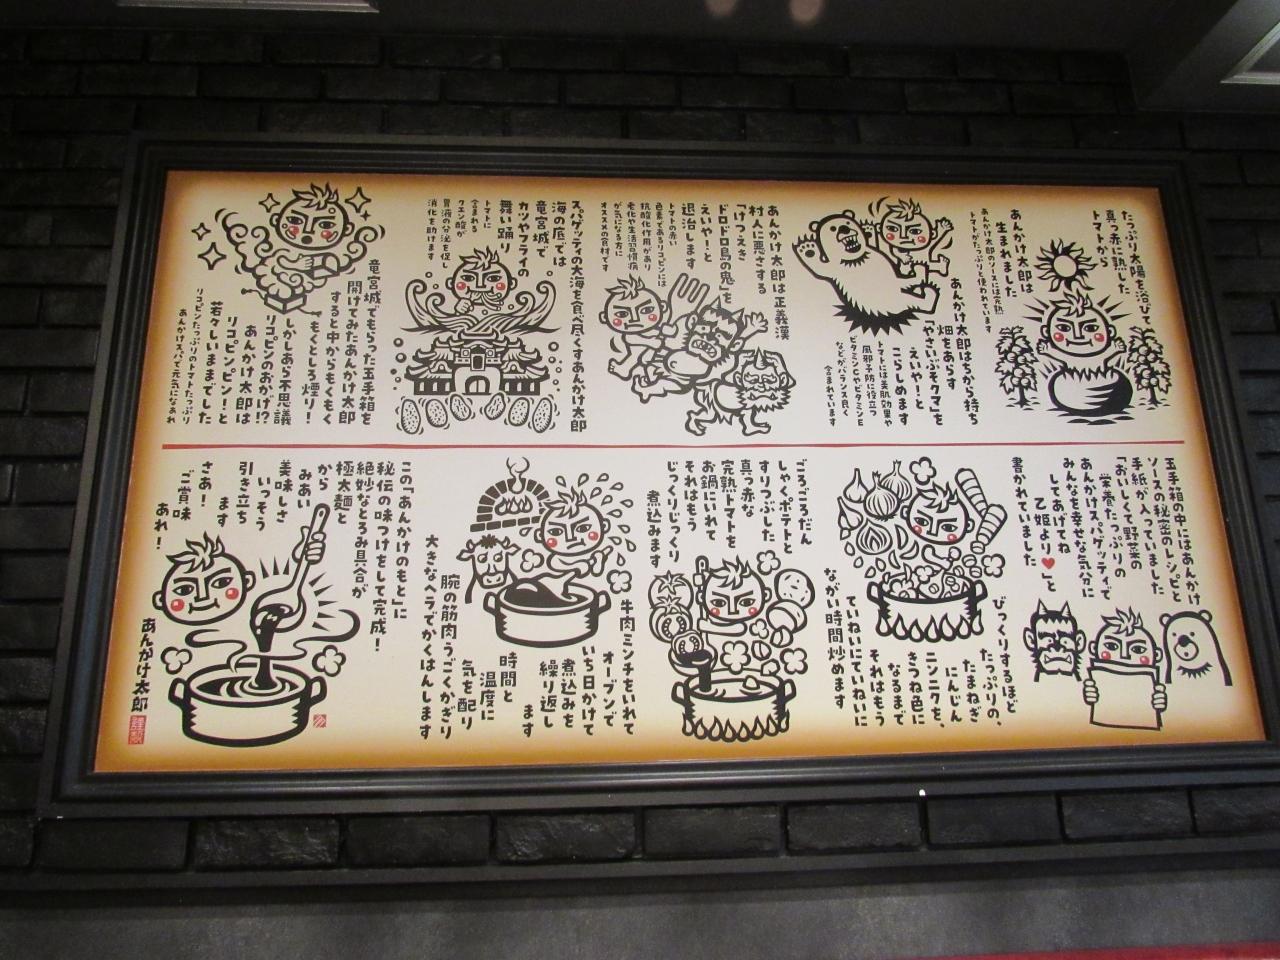 たっぷり太陽を浴びて
真っ赤に熟した
トマトから
あんかけ太郎は
生まれました
あんかけ太郎のソースには完熟
トマトがたっぷりと使われています
あんかけ太郎はちから持ち
畑をあらす
「やさいぶそグマ」を
えいや!と
こらしめます
トマトには美肌効果や
風邪予防に役立つ
ビタミンCやビタミンE
などがバランス良く
含まれています
あんかけ太郎は正義漢
村人に悪さする
「けつえき
ドロドロ島の鬼」を
えいや!と
退治します
トマトの赤い
色素であるリコピンには
抗酸化作用があり
老化や生活習慣病
が気になる方に
オススメの食材です
スパゲッティの大海を食べ尽くすあんかけ太郎
海の底では
竜宮城で
カツやフライの
舞い踊り
トマトに
含まれる
クエン酸が
胃液の分泌を促し
消化を助けます
竜宮城でもらった玉手箱を
開けてみたあんかけ太郎
すると中からもくもく
もくとしろ煙!
しかしあら不思議
リコピンのおかげ!?
あんかけ太郎は
リコピンピン!と
若々しいままでした
リコピンたっぷりのトマトたっぷり
あんかけスパで元気になあれ
玉手箱の中にはあんかけ
ソースの秘密のレシピと
手紙が入っていました
「おいしくて野菜の
栄養たっぷりの
あんかけスパゲッティで
みんなを幸せな気分に
してあげてね
乙姫より♥」と
書かれていました
びっくりするほど
たっぷりの、
にんじん
たまねぎ
ニンニクを、
きつね色に
なるまで
それはもう
ていねいにていねいに
ながい時間炒めます
ごろごろだん
しゃくポテトと
すりつぶした
真っ赤な
完熟トマトを
お鍋にいれて
それはもう
じっくりじっくり
煮込みます
牛肉ミンチをいれて
オーブンで
いち日かけて
煮込みを
繰り返し
ます
時間と
温度に
気を配り
腕の筋肉うごくかぎり
大きなヘラでかくはんします
この「あんかけのもと」に
秘伝の味つけをして完成!
絶妙なとろみ具合が
極太麺と
から
みあい
美味しさ
いっそう
引き立ち
ます
さあ!
ご賞味
あれ!
あんかけ太郎